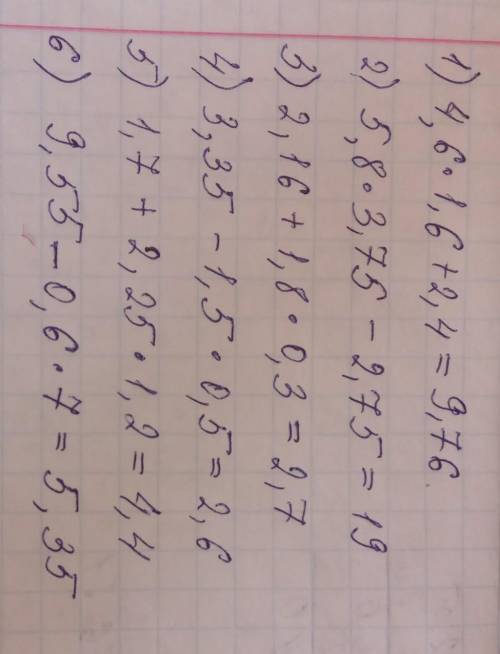 1) 4,6·1,6+2,4=9,76
2) 5,8·3,75-2,75=19
3) 2,16+1,8·0,3=2,7
4) 3,35-1,5·0,5=2,6
5) 1,7+2,25·1,2=4,4
6) 9,55-0,6·7=5,35